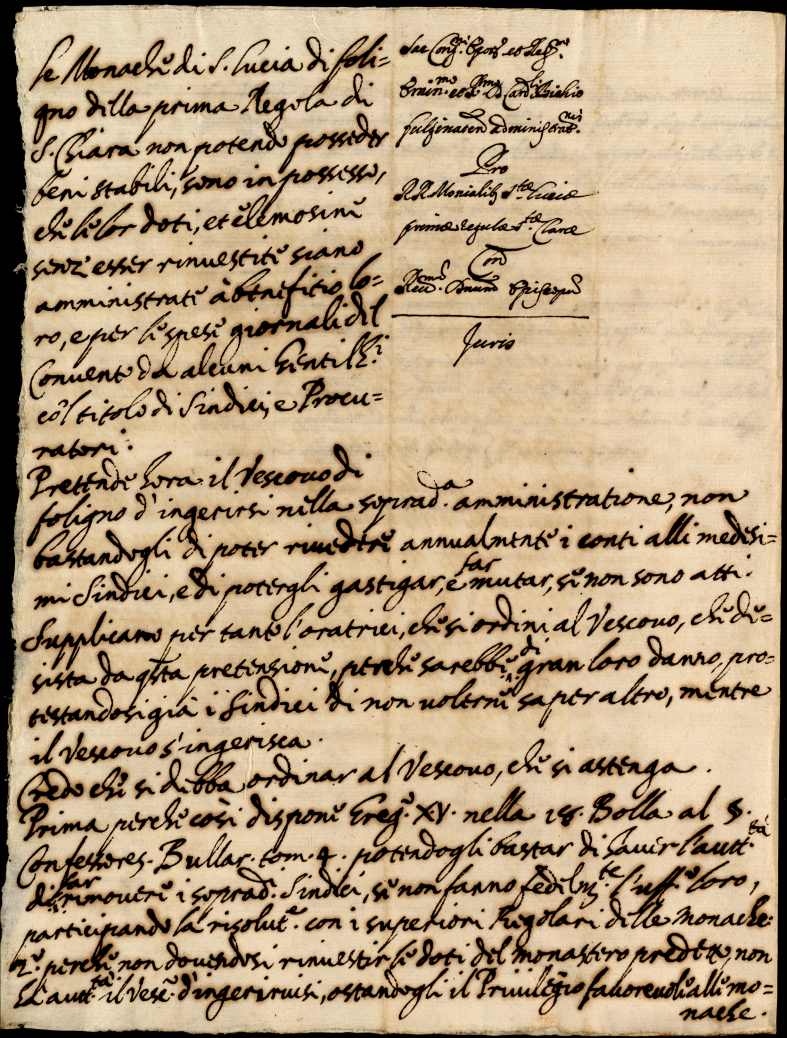 Le Monache di S. Lucia di foli=
gno della prima Regola di
S. Chiara non potendo posseder
beni stabili, sono in possesso,
che le lor doti, et elemosine
senz'esser rinvestite siano
amministrate à benefitio lo=
ro, e per le spese giornali del
Convento da alcuni Gentilh.i
co'l titolo di Sindici, e Procu=
ratori.
Sac. Cong. Epor. et Reg.
Emin.mo et R.mo D. Card.li
fulginaten administrat.nis
Pro
RR. Monialib. S.tae Luciae
primae regulae S.tae Clarae
Con
Rev.mum Dnum Episcopum
Juris
Pretende hora il Vescovo di
foligno d'ingerirsi nella soprad.a amministratione, non
bastandogli di poter rivedere annualmente i conti alli medesi=
mi Sindici, e di potergli gastigar, e far mutar, se non sono atti.
Supplicano per tanto l'oratrici, che si ordini al Vescovo, che de=
sista da q.sta pretensione, perche sarebbe di gran loro danno, pro=
testandosi già i Sindici di non volerne saper altro, mentre
il Vescovo s'ingerisca.
Credo che si debba ordinar al Vescovo, che si astenga.
Prima perche così dispone Greg.o XV. nella 18. Bolla al §.
Confessores. Bullar. tom. 4. potendogli bastar di haver l'autt.tà
di far rimovere i soprad.i Sindici, se non fanno fedelm.te l'uff.o loro,
participando la risolut.e con i superiori Regolari delle Monache.
2.o perche non dovendosi rinvestir le doti del monastero predetto, non
hà autt.tà il Vesc.o d'ingerirvisi, ostandogli il Privilegio favorevole alle mo=
nache.